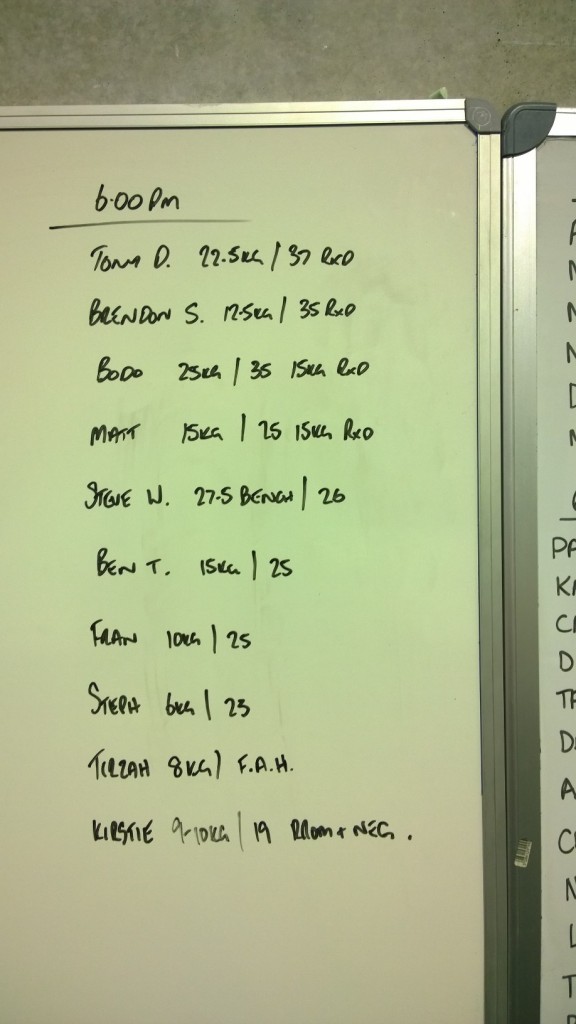 6:00 Pm
TONY D. 22.5KG / 37 RxD
BRENDON S. 17.5KG / 35 RxD
BODO 25KG / 35 15KG RxD
MATT 15KG / 25 15KG RxD
STEVE W. 27.5 BENCH / 26
BEN T. 15KG / 25
FRAN 10KG / 25
STEPH 6KG / 23
TIRZAH 8KG / F.A.H.
KIRSTIE 9-10KG / 19 RROM + NEG.
PA
KA
D
A
N
L
T